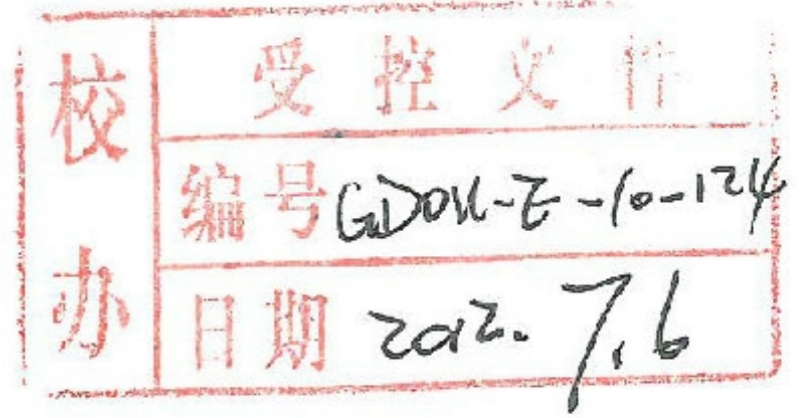 校办
受控文件
编号 GDOU-E-10-124
日期 2012. 7.6